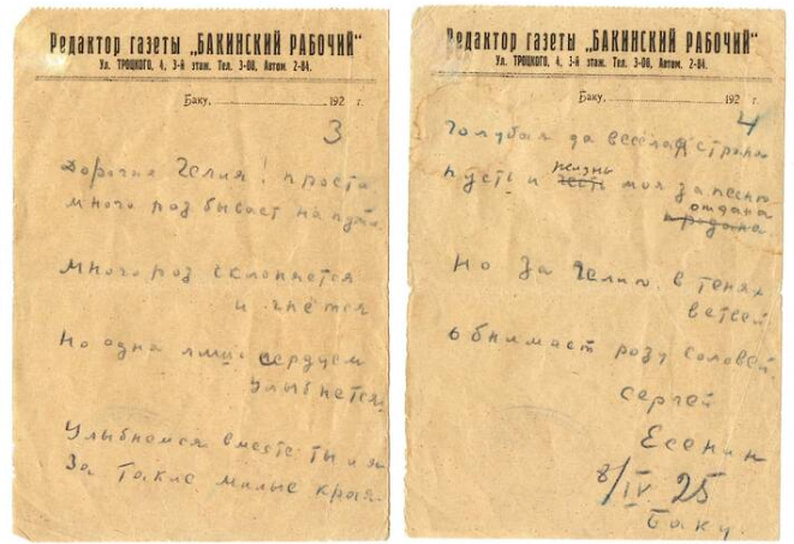 Редактор газеты „БАКИНСКИЙ РАБОЧИЙ“
Ул. ТРОЦКОГО, 4, 3-й этаж. Тел. 3-00, Автом. 2-84.
Баку, 192 г.
3
Дорогая Гелия! прости
много роз бывает на пути.
Много роз склоняется
и гнётся
Но одна лишь сердцем
улыбнется.
Улыбнемся вместе ты и я
За такие милые края.
Редактор газеты „БАКИНСКИЙ РАБОЧИЙ“
Ул. ТРОЦКОГО, 4, 3-й этаж. Тел. 3-00, Автом. 2-84.
Баку, 192 г.
4
Голубая да весёлая страна
жизнь
пусть и честь моя за песню
отдана
продана.
Но за Гелию в тенях
ветвей
обнимает розу соловей.
Сергей
Есенин
8/IV 25
Баку.